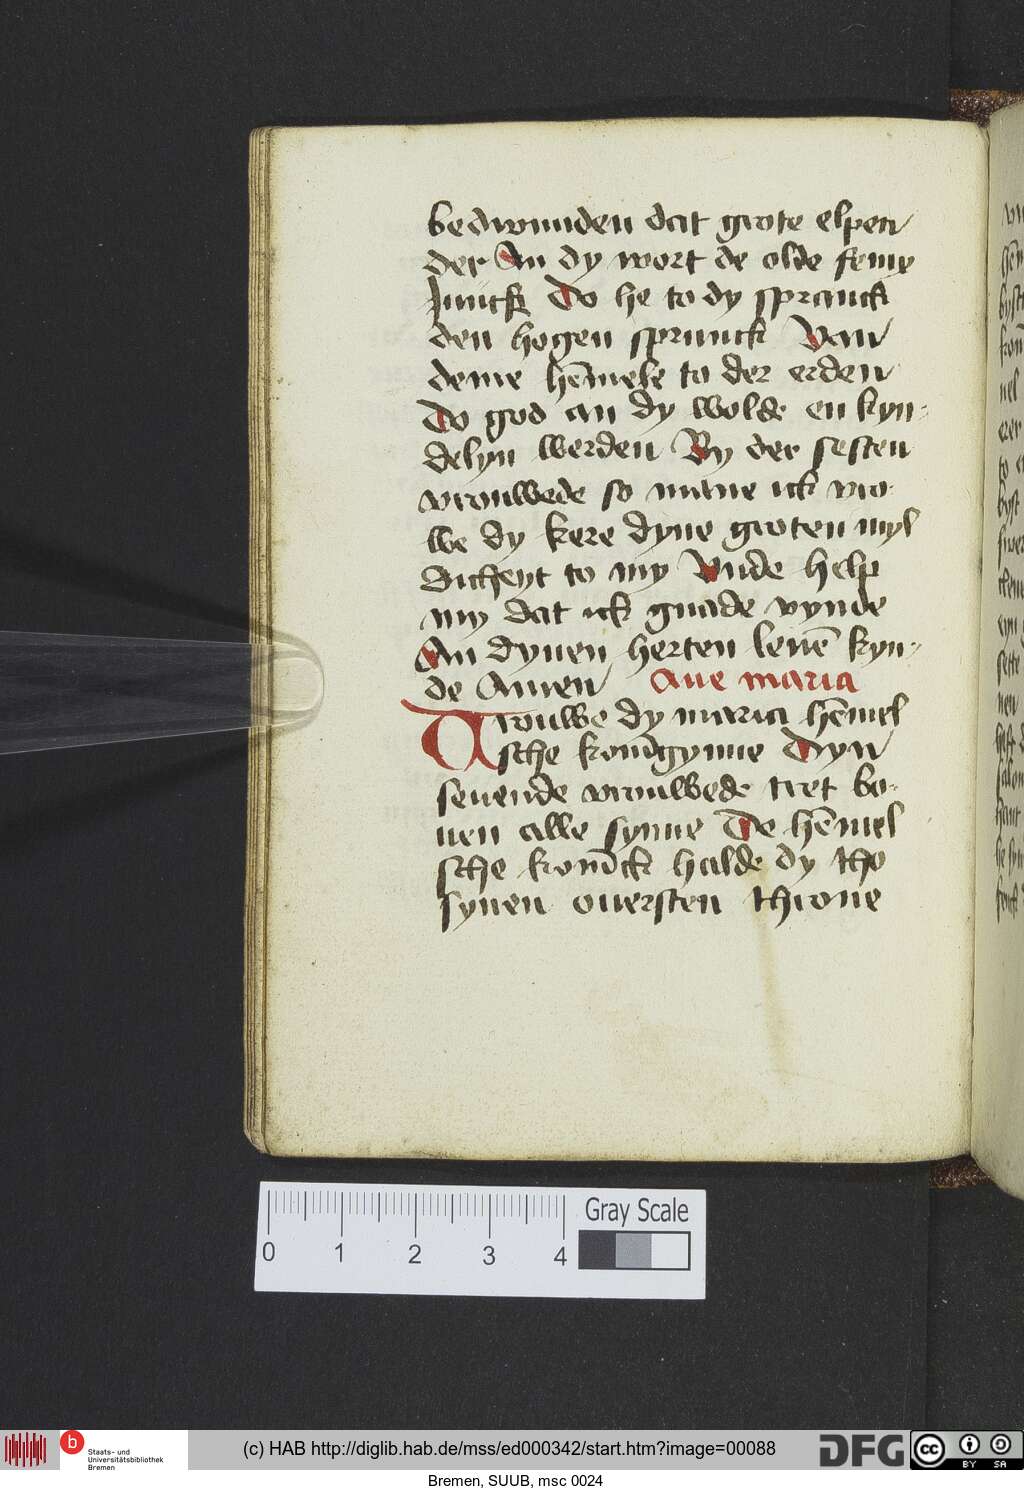 bedwunden dat grote elpen
der An dy wort de olde semy
Junck Do he to dy spranck
den hogen sprunck Van
deme hēmele to der erden
Do god an dy wolde en kyn-
delyn werden By der sesten
vrouwede so mane ick vro-
we dy kere dyne groten myl
dicheyt to my Unde help
my dat ick gnade vynde
An dynen herten leuē kyn-
de Amen Aue maria
Vrouwe dy maria hēmel
sche konīgynne Dyn
seuende vrouwede tret bo-
uen alle synne De hēmel
sche konīck halde dy tho
synen ouersten throne
vn
0 1 2 3 4
Gray Scale
b Staats- und
Universitätsbibliothek
Bremen
(c) HAB http://diglib.hab.de/mss/ed000342/start.htm?image=00088
DFG
cc BY SA
Bremen, SUUB, msc 0024